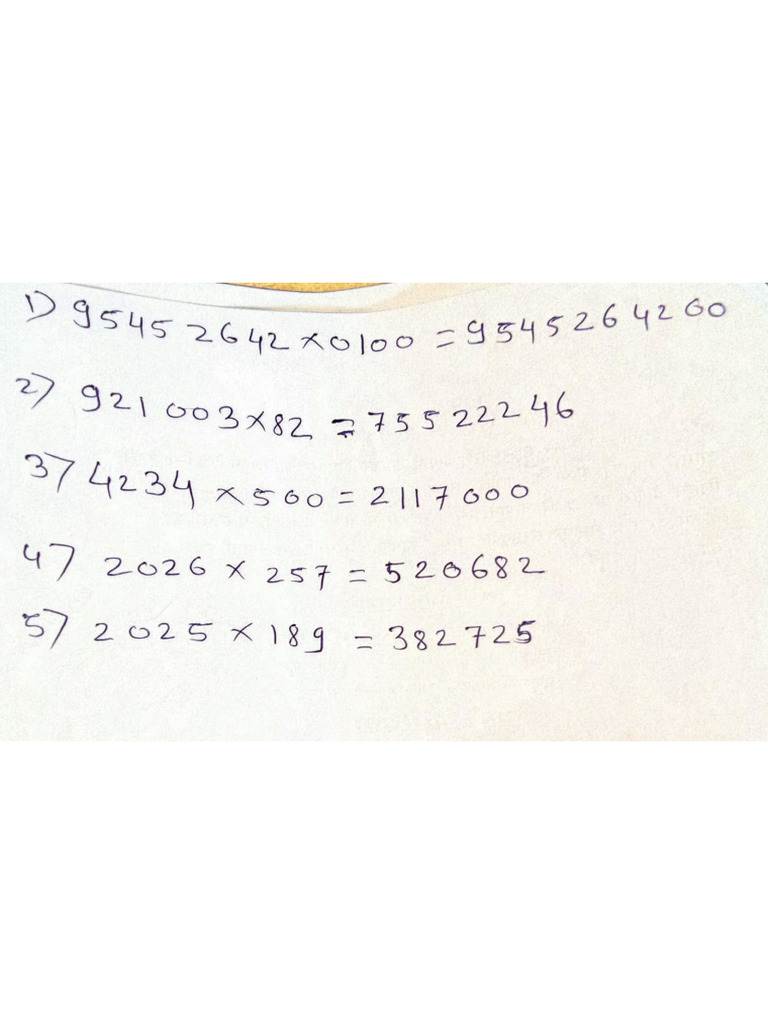 1) 95452642×0100 = 9545264200
2) 921003×82 = 75522246
3) 4234 × 500 = 2117000
4) 2026 × 257 = 520682
5) 2025 × 189 = 382725